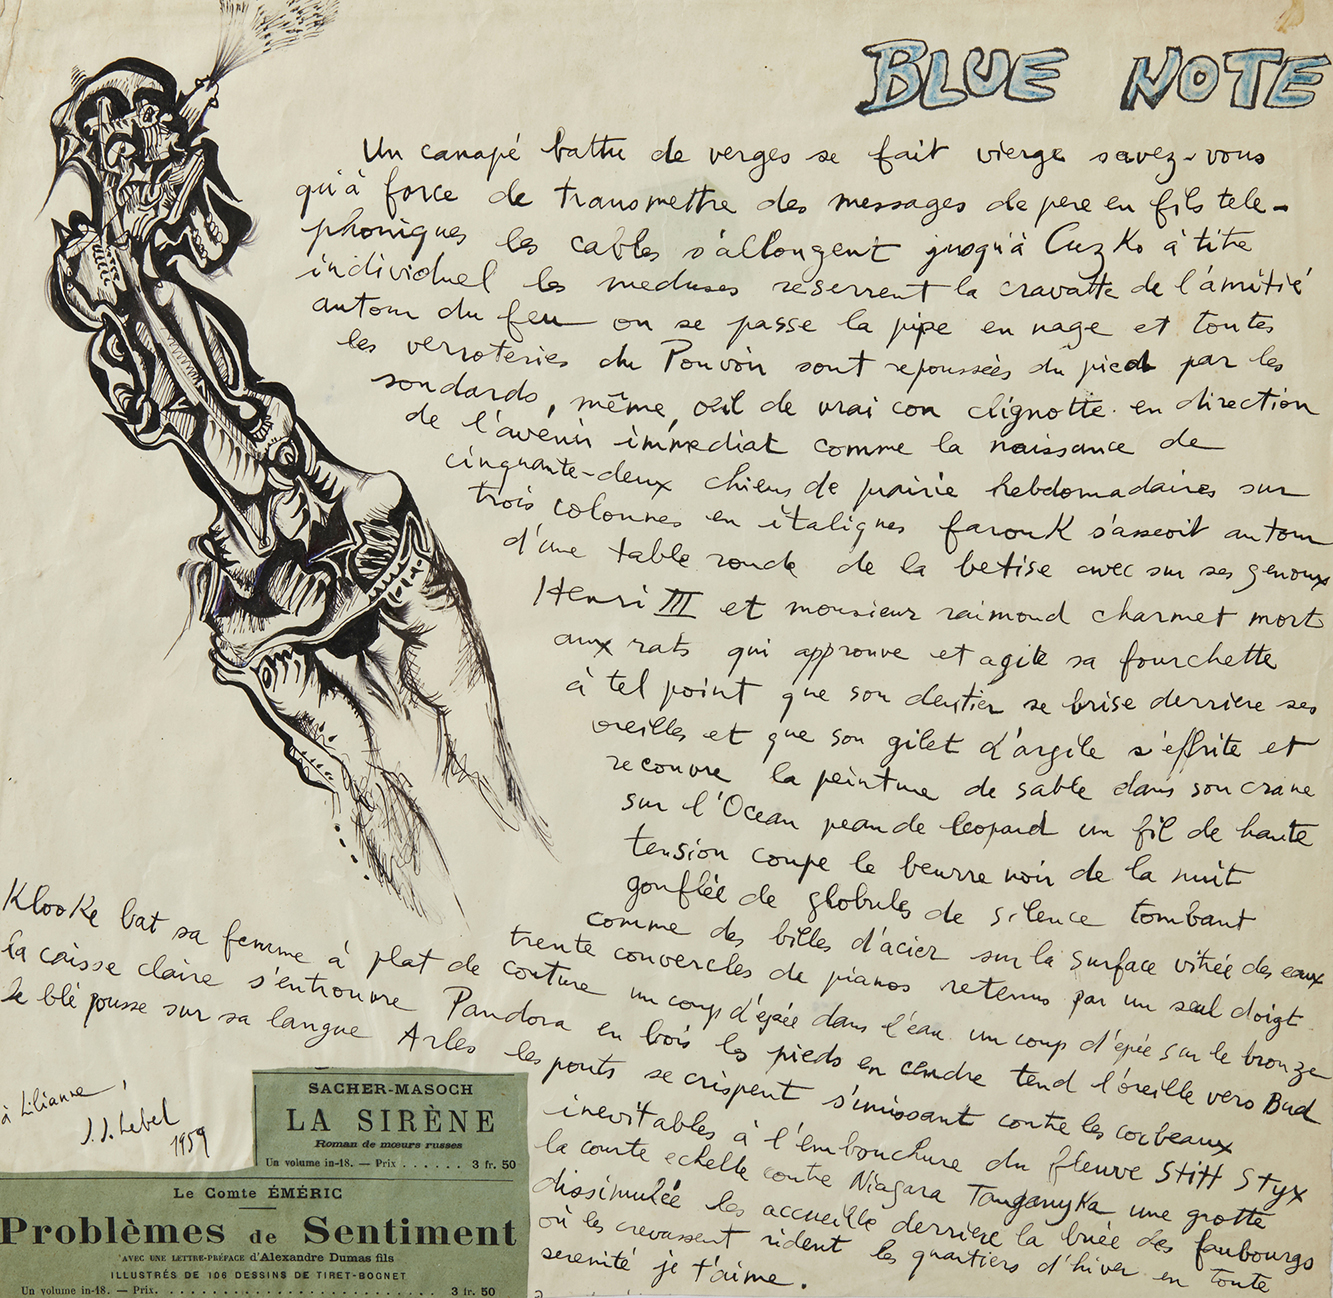 BLUE NOTE
Un canapé battu de verges se fait vierge savez-vous
qu'à force de transmettre des messages de pere en fils tele-
phoniques les cables s'allongent jusqu'à Cuzko à titre
individuel les meduses reserrent la cravatte de l'amitié
autour du feu on se passe la pipe en nage et toutes
les verroteries du Pouvoir sont repoussées du pied par les
soudards, même œil de vrai con clignotte en direction
de l'avenir immediat comme la naissance de
cinquante-deux chiens de prairie hebdomadaires sur
trois colonnes en italiques farouk s'asseoit autour
d'une table ronde de la betise avec sur ses genoux
Henri III et monsieur raimond charmet mort
aux rats qui approuve et agite sa fourchette
à tel point que son dentier se brise derriere ses
oreilles et que son gilet d'argile s'effrite et
recouvre la peinture de sable dans son crane
sur l'Ocean peau de leopard un fil de haute
tension coupe le beurre noir de la nuit
gonflée de globules de silence tombant
comme des billes d'acier sur la surface vitrée des eaux
trente couvercles de pianos retenus par un seul doigt
Klooke bat sa femme à plat de couture un coup d'épée dans l'eau un coup d'épée sur le bronze
la caisse claire s'entrouvre Pandora en bois les pieds en cendre tend l'oreille vers Bud
le blé pousse sur sa langue Arles les ponts se crispent s'unissant contre les corbeaux
inevitables à l'embouchure du fleuve Stiff Styx
la courte echelle contre Niagara Tanganyka une grotte
dissimulée les accueille derriere la buée des faubourgs
où les crevassent rident les quartiers d'hiver en toute
serenité je t'aime.
à Lilianne
J.J. Lebel
1959
SACHER-MASOCH
LA SIRÈNE
Roman de mœurs russes
Un volume in-18. — Prix . . . . . . 3 fr. 50
Le Comte ÉMÉRIC
Problèmes de Sentiment
AVEC UNE LETTRE-PRÉFACE d'Alexandre Dumas fils
ILLUSTRÉS DE 106 DESSINS DE TIRET-BOGNET
Un volume in-18. — Prix. . . . . . . . . . . . . . . . . . . . . . . . 3 fr. 50